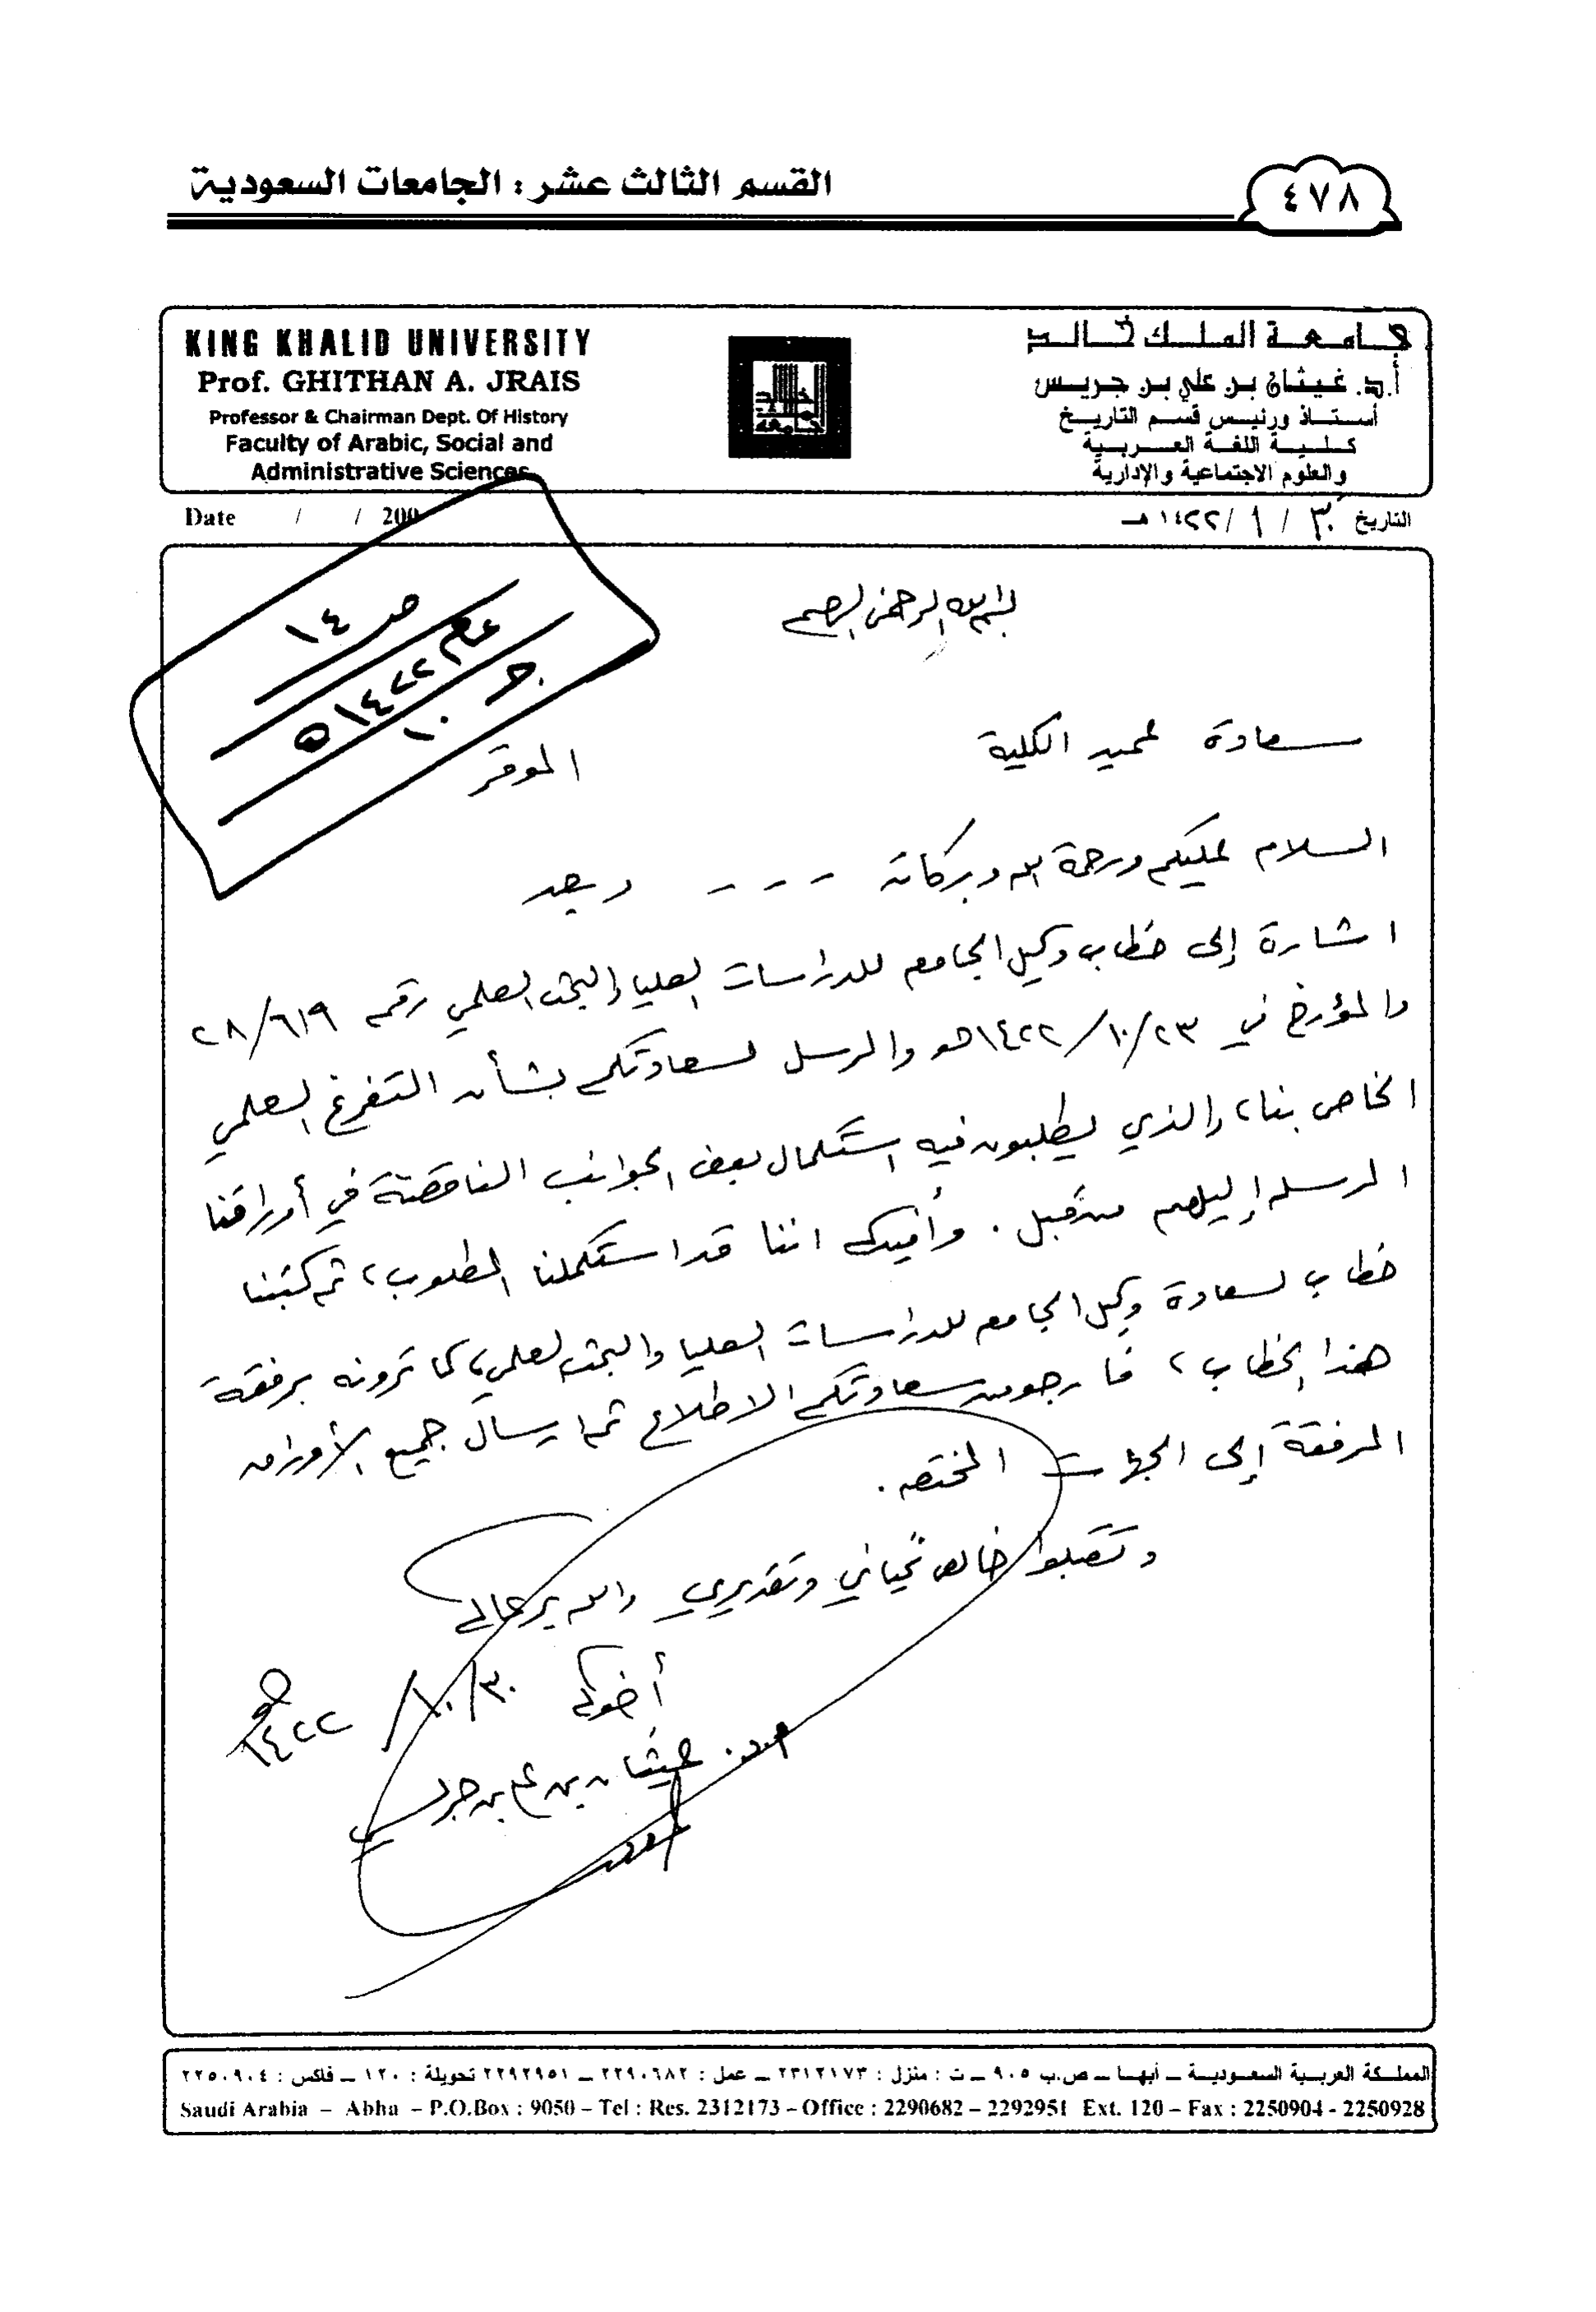 القسم الثالث عشر: الجامعات السعودية
٤٧٨
KING KHALID UNIVERSITY
Prof. GHITHAN A. JRAIS
Professor & Chairman Dept. Of History
Faculty of Arabic, Social and
Administrative Sciences
جامعة الملك خالد
أ.د. غيثان بن علي بن جريس
أستاذ ورئيس قسم التاريخ
كلية اللغة العربية
والعلوم الاجتماعية والإدارية
Date / / 200
التاريخ ٣٠ / ١ /١٤٢٢هـ
ص ١٤
عام ١٤٢٢هـ
جـ ١٠
بسم الله الرحمن الرحيم
سعادة عميد الكلية الموقر
السلام عليكم ورحمة الله وبركاته - - - وبعد
اشارة إلى خطاب وكيل الجامعه للدراسات العليا والبحث العلمي رقم ٢٨/٦١٩
والمؤرخ في ١٤٢٢/١٠/٢٣هـ والمرسل لسعادتكم بشأن التفرغ العلمي
الخاص بنا، والذي يطلبون فيه استكمال بعض الجوانب الناقصة في أوراقنا
المرسله إليهم من قبل . وأفيدكم اننا قد استكملنا المطلوب، ثم كتبنا
خطاب لسعادة وكيل الجامعه للدراسات العليا والبحث العلمي، كما ترونه برفقة
هذا الخطاب، فأرجو من سعادتكم الاطلاع ثم ارسال جميع الأوراق
المرفقة إلى الجهات المختصه .
وتقبلوا خالص تحياتي وتقديري والله يرعاكم
أخوكم ١٤٢٢/١٠/٣٠هـ
أ.د. غيثان بن علي بن جريس
المملكة العربية السعودية ـ أبهـا ـ ص.ب ٩٠٥ ـ ت : منزل : ٢٣١٢١٧٣ ـ عمل : ٢٢٩٠٦٨٢ ـ ٢٢٩٢٩٥١ تحويلة : ١٢٠ ـ فاكس : ٢٢٥٠٩٠٤
Saudi Arabia – Abha – P.O.Box : 9050 – Tel : Res. 2312173 – Office : 2290682 – 2292951 Ext. 120 – Fax : 2250904 - 2250928